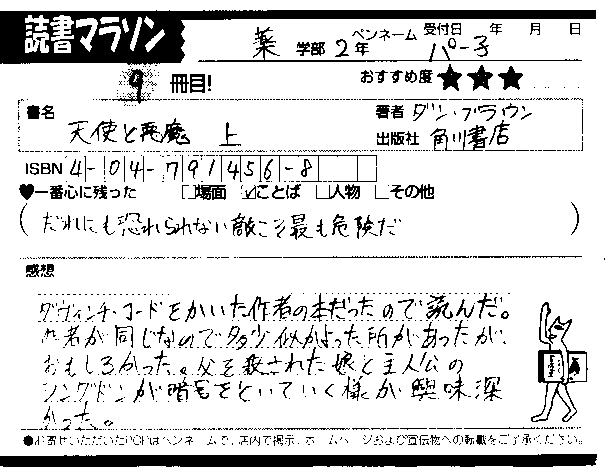 読書マラソン
薬 学部 2年 ペンネーム パー子 受付日 年 月 日
9 冊目! おすすめ度 ★★★
書名 天使と悪魔 上
著者 ダン・ブラウン
出版社 角川書店
ISBN 4-04-791456-8
♥一番心に残った □場面 ☑ことば □人物 □その他
(だれにも恐れられない敵こそ最も危険だ)
感想
ダヴィンチ・コードをかいた作者の本だったので読んだ。
作者が同じなので多少似かよった所があったが
おもしろかった。父を殺された娘と主人公の
ラングドンが暗号をといていく様が興味深
かった。
●お寄せいただいたPOPはペンネームで、店内で掲示、ホームページおよび宣伝物への転載をご了承ください。